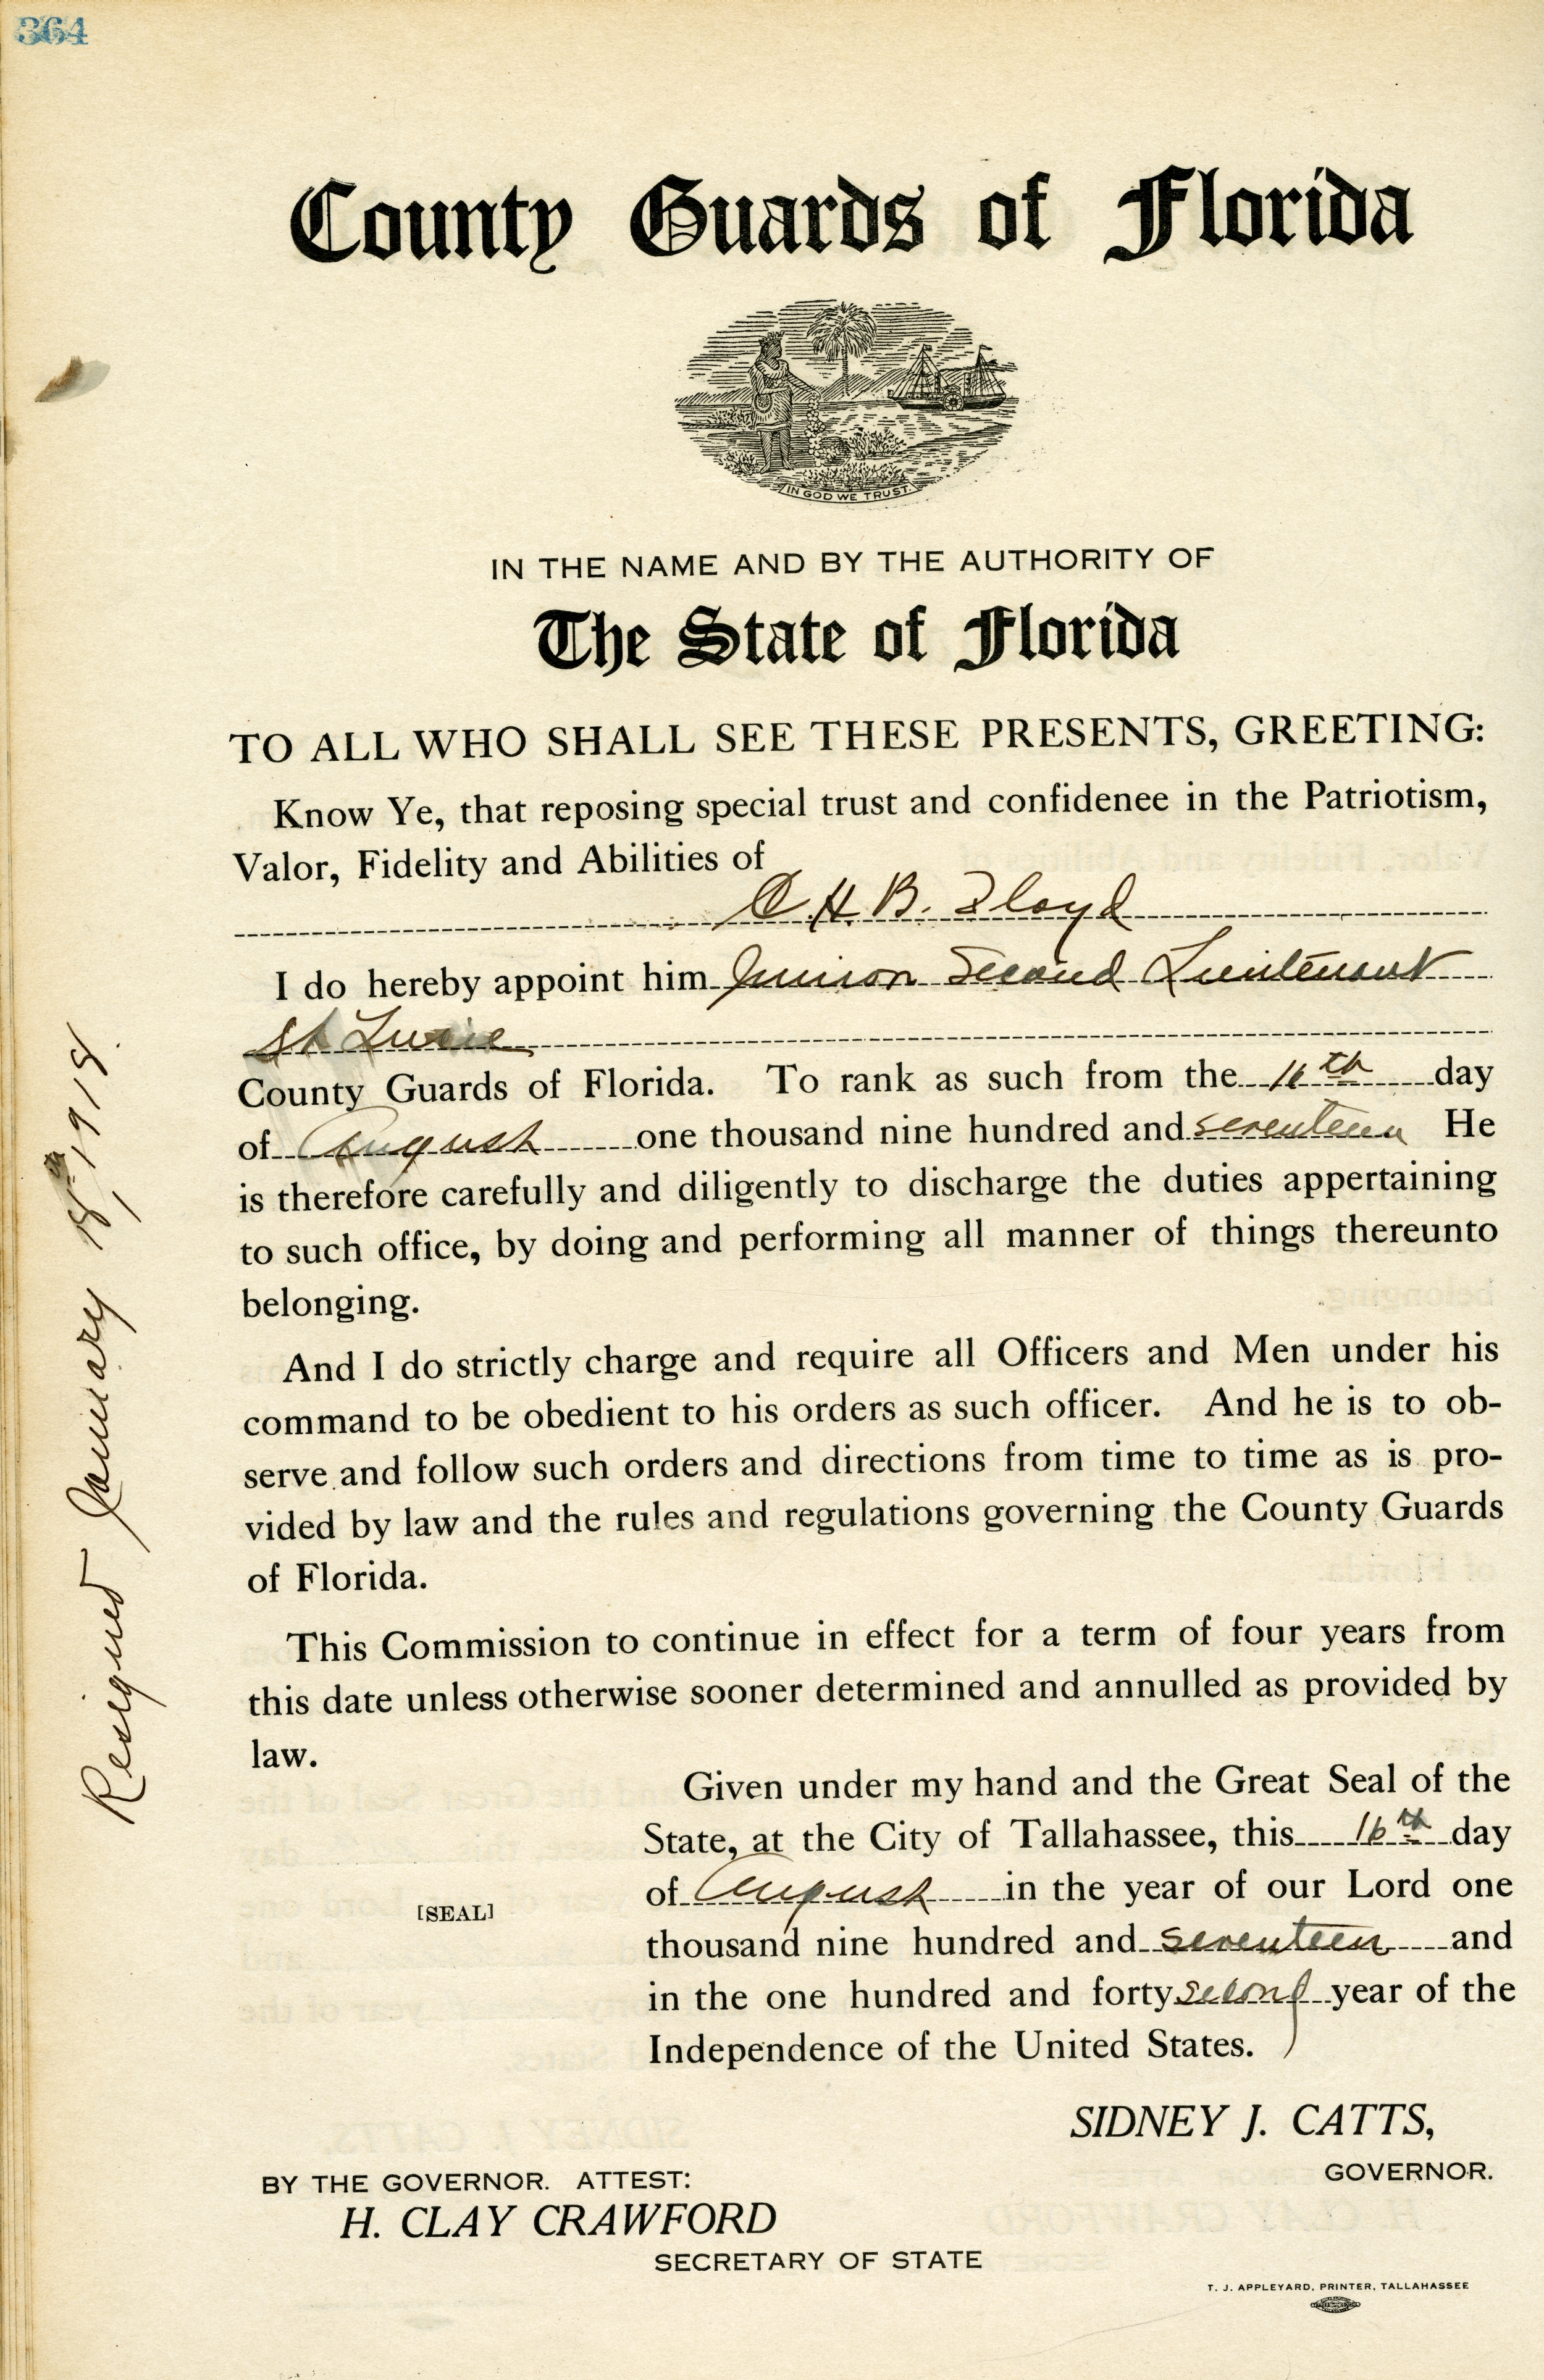 364
County Guards of Florida
IN GOD WE TRUST
IN THE NAME AND BY THE AUTHORITY OF
The State of Florida
TO ALL WHO SHALL SEE THESE PRESENTS, GREETING:
Know Ye, that reposing special trust and confidenee in the Patriotism,
Valor, Fidelity and Abilities of
C. H. B. Floyd
I do hereby appoint him Junior Second Lieutenant
St Lucie
County Guards of Florida. To rank as such from the 16th day
of August one thousand nine hundred and seventeen He
is therefore carefully and diligently to discharge the duties appertaining
to such office, by doing and performing all manner of things thereunto
belonging.
And I do strictly charge and require all Officers and Men under his
command to be obedient to his orders as such officer. And he is to ob-
serve and follow such orders and directions from time to time as is pro-
vided by law and the rules and regulations governing the County Guards
of Florida.
This Commission to continue in effect for a term of four years from
this date unless otherwise sooner determined and annulled as provided by
law.
Given under my hand and the Great Seal of the
State, at the City of Tallahassee, this 16th day
of August in the year of our Lord one
[SEAL]
thousand nine hundred and seventeen and
in the one hundred and forty second year of the
Independence of the United States.
SIDNEY J. CATTS,
GOVERNOR.
BY THE GOVERNOR. ATTEST:
H. CLAY CRAWFORD
SECRETARY OF STATE
T. J. APPLEYARD, PRINTER, TALLAHASSEE
Resigned January 18th, 1918.